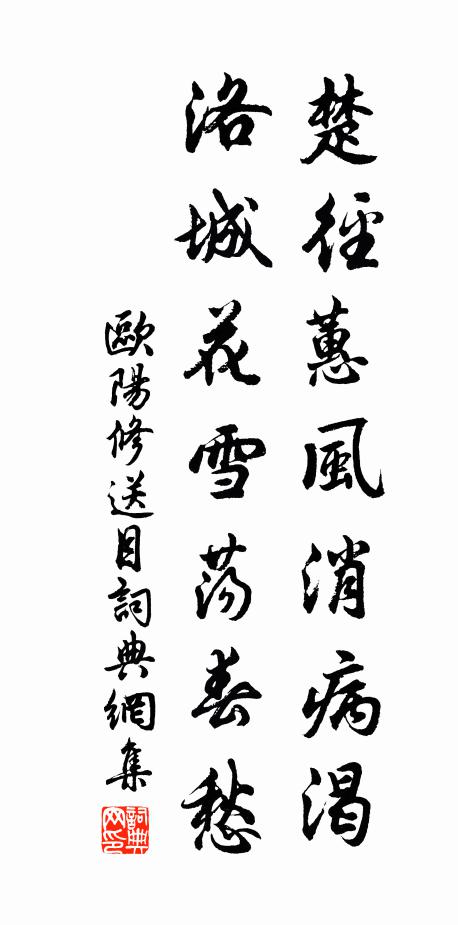 楚徑蕙風消病渴
洛城花雪蕩春愁
歐陽修送目詞典網集
詞典網印